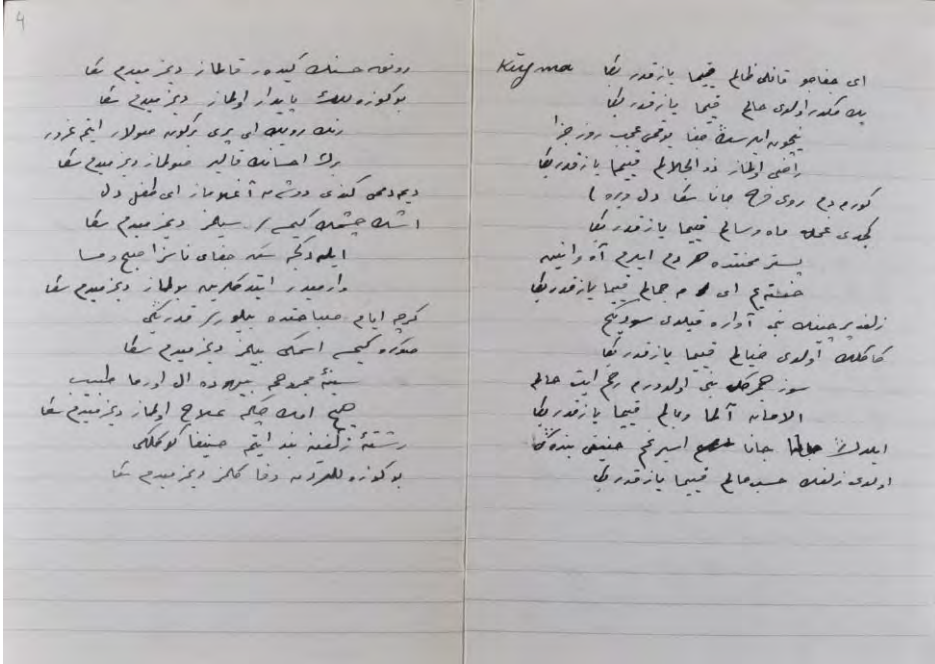 Kıyma
اى جفاجو قانلى ظالم قييما يازقدر بكا
پك مكدر اولدى حالم قيما يازقدر بكا
نيچون ايدرسڭ جفا يوقمى عجب روز جزا
راضى اولماز ذوالجلالم قييما يازقدر بكا
روى فرح جانا سكا دل ويره لى
كچدى غمله ماه و سالم قييما يازقدر بكا
بستر محنتده هر دم ايلرم آه و انينه
خسته يم اى مه جمالم قييما يازقدر بكا
زلف پرچينك بنى آواره قيلدى سوديكم
كاكلك اولدى خيالم قييما يازقدر بكا
سوز هجركله بنى اولدورمه رحم ايت حالمه
الامان آلما وبالم قييما يازقدر بكا
ايلدك جانا اسير غم حنيفى بنده كى
اولدى زلفك حسب حالم قييما يازقدر بكا
4
رونق حسنك كيدر قالماز ديمزميدم سكا
بو كوزه للك پايدار اولماز ديمزميدم سكا
رنك رويك اى پرى بركون صولار ايتمه غرور
برك احسانك قالير صولماز ديمزميدم سكا
كندى دوشن آغلاماز اى طفل دل
اشك چشمك كيمسه لر سيلمز ديمزميدم سكا
ايله دكجه سن جفاى ناسزا صبح و مسا
وارميدر ايتدكلرين بولماز ديمزميدم سكا
كرچه ايام صباحتده بيلورلر قدرڭى
صوكره كيمسه اسمكى بيلمز ديمزميدم سكا
سينۀ مجروحمه بيهوده ال اورما طبيب
هيچ امك چكمه علاج اولماز ديمزميدم سكا
رشتۀ زلفينه بند ايتمه حنيفا كوكلكى
بو كوزه للردن وفا كلمز ديمزميدم سكا